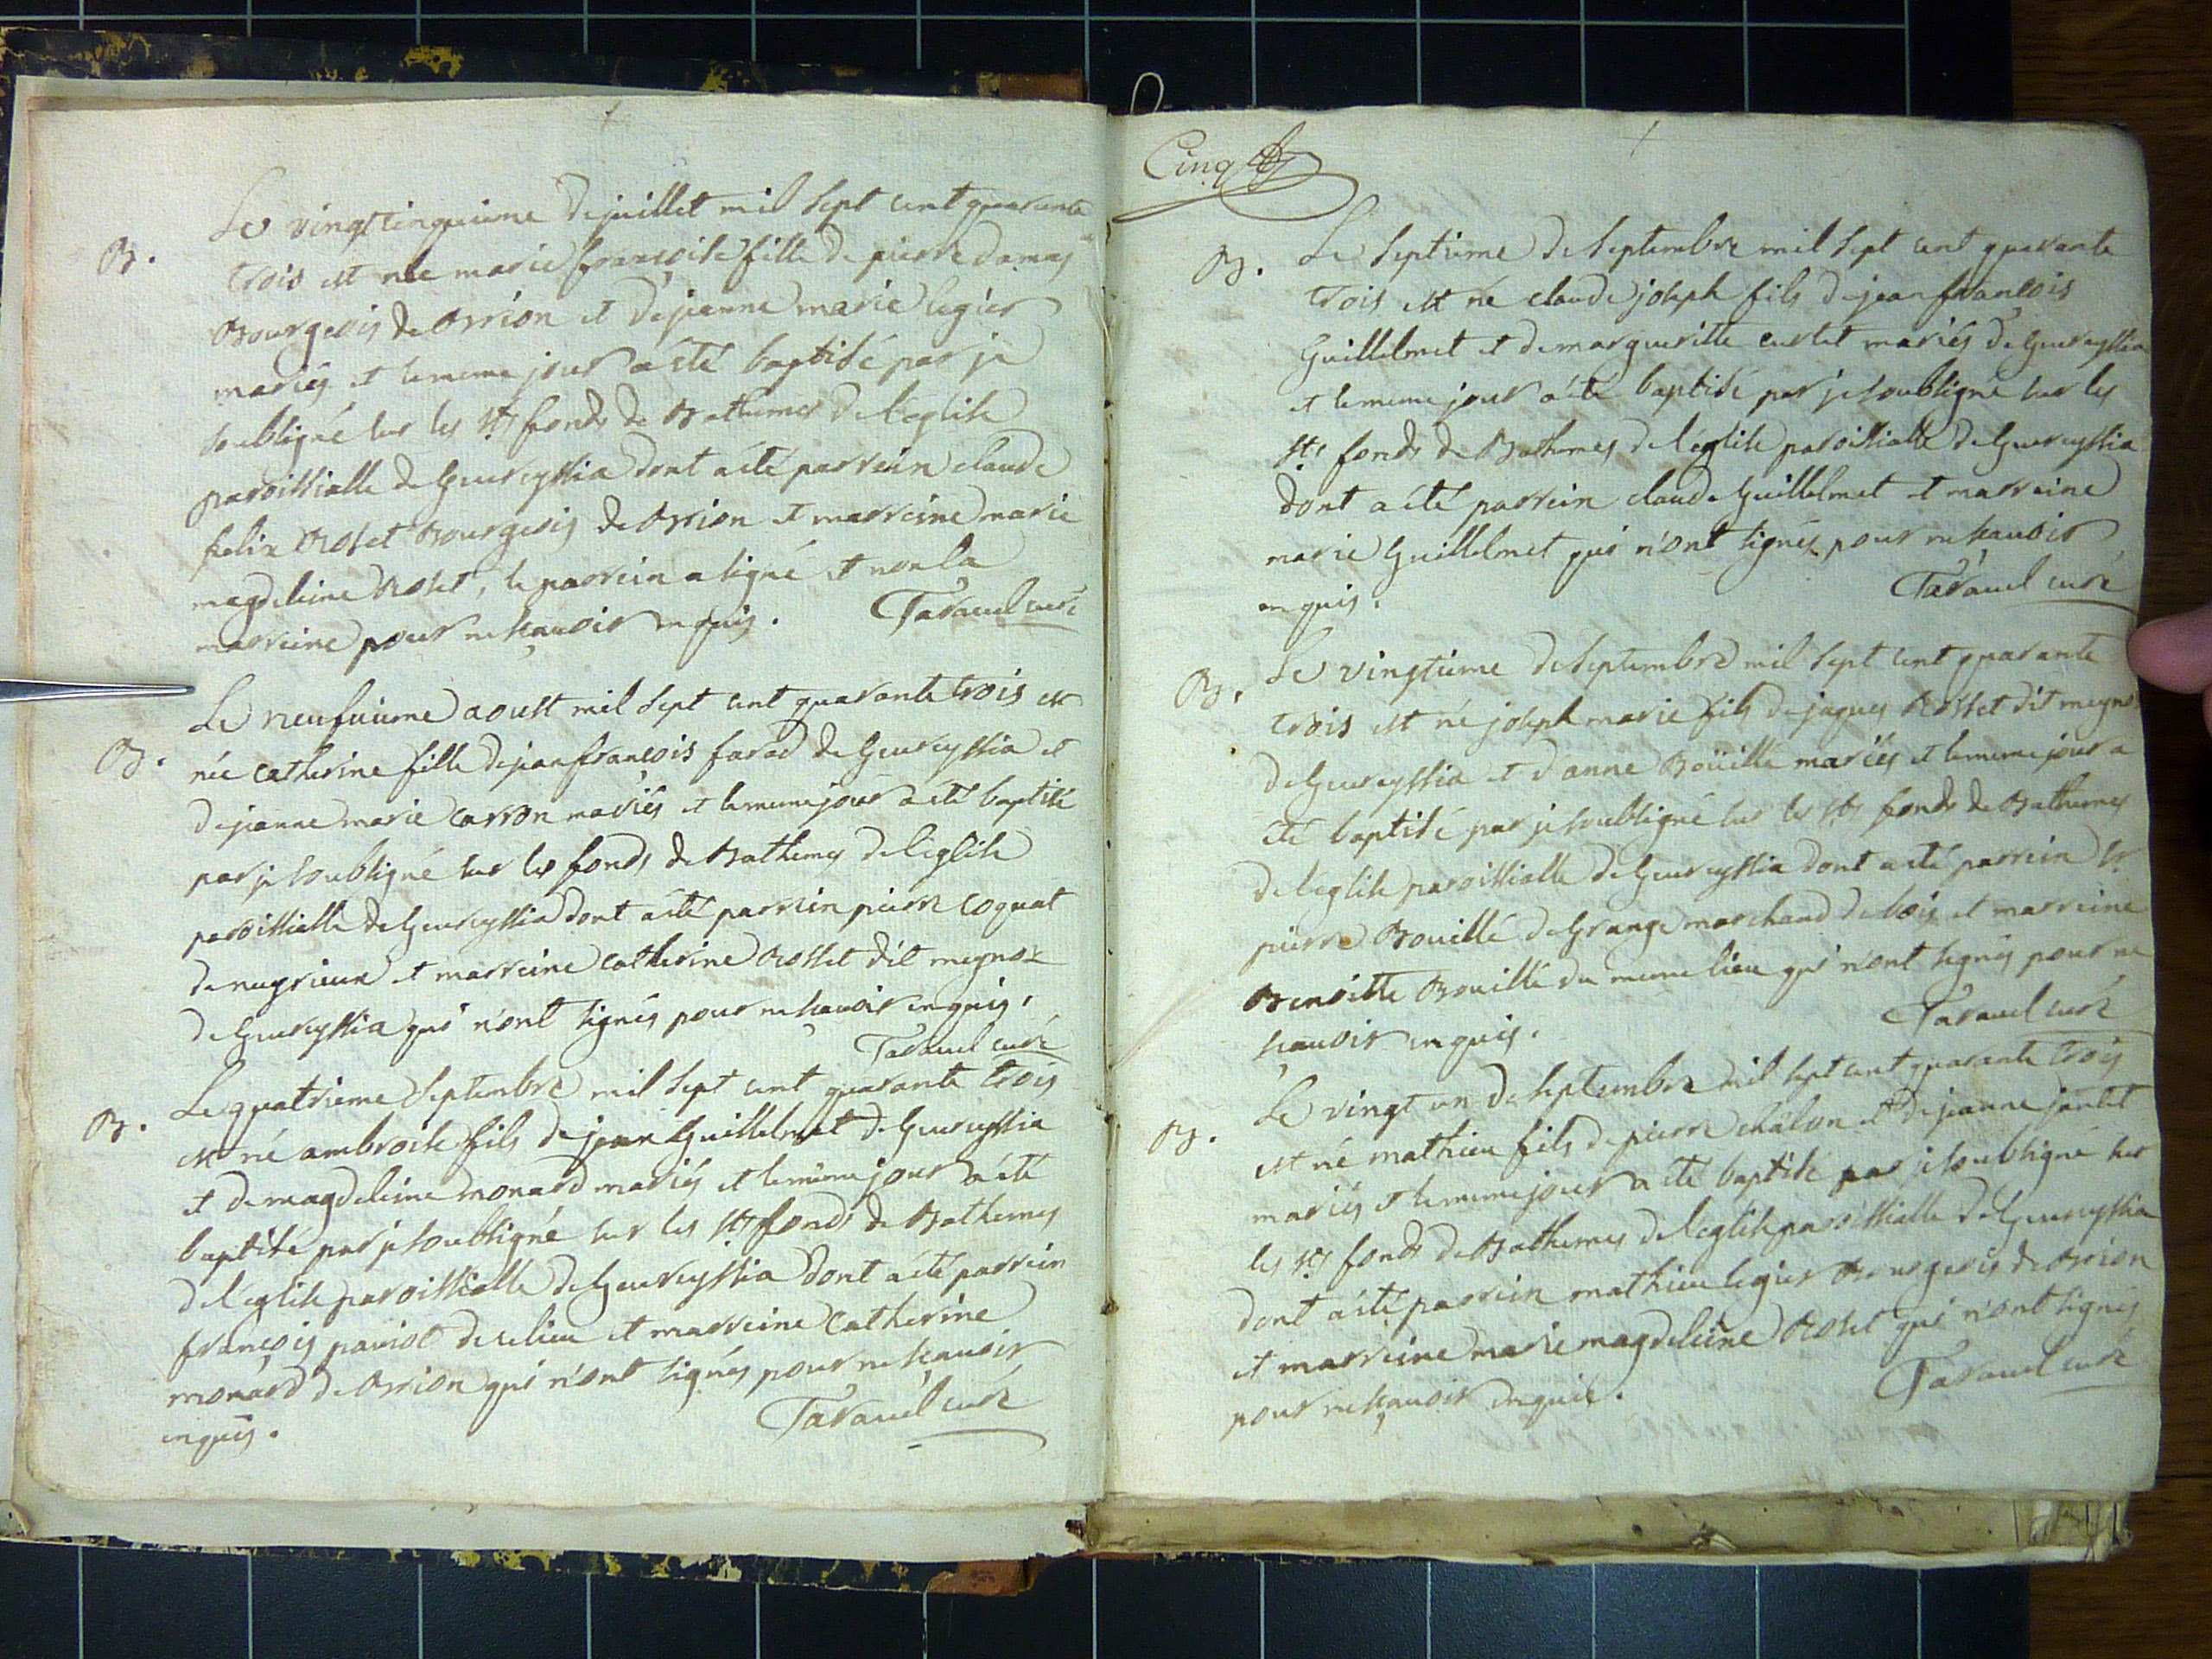 B. Le vingtcinquieme de juillet mil sept cent quarante
trois est née marie françoise fille de pierre damas
Bourgeois de Brion et de jeanne marie legier
mariés et le meme jour a été baptisé par je
soubsigné sur les Sts fonds de Bathemes de l'eglise
paroissialle de Geureyssia dont a été parrein claude
felix Rosset Bourgeois de Brion et marreine marie
magdeleine Rosset, le parrein a signé et non la
marreine pour ne sçavoir enquis. Taravel curé
B. Le neufuieme aoust mil sept cent quarante trois est
née catherine fille de jean françois farod de Geureyssia et
de jeanne marie carron mariés et le meme jour a été baptisé
par je soubsigné sur les fonds de Bathemes de l'eglise
paroissialle de Geureyssia dont a été parrein pierre coquat
de nugrieux et marreine catherine Rosset dit megnoz
de Geureyssia qui n'ont signés pour ne scavoir enquis.
Taravel curé
B. Le quatrieme Septembre mil sept cent quarante trois
est né ambroise fils de jean Guillelmet de Geureyssia
et de magdeleine monard mariés et le même jour a été
baptisé par je soubsigné sur les Sts fonds de Bathemes
de l'eglise paroissialle de Geureyssia dont a été parrein
françois de ce lieu et marreine catherine
monard de Brion qui n'ont signés pour ne scavoir
enquis. Taravel curé
Cinq
B. Le septieme de septembre mil sept cent quarante
trois est né claude joseph fils de jean françois
Guillelmet et de margueritte curtet mariés de Geureyssia
et le meme jour a été baptisé par je soubsigné sur les
Sts fonds de Bathemes de l'eglise paroissialle de Geureyssia
dont a été parrein claude Guillelmet et marreine
marie Guillelmet qui n'ont signés pour ne scavoir
enquis. Taravel curé
B. Le vingtieme de septembre mil sept cent quarante
trois est né joseph marie fils de jaques Rosset dit megnoz
de Geureyssia et d'anne Boüillé mariés et le meme jour a
été baptisé par je soubsigné sur les Sts fonds de Bathemes
de l'eglise paroissialle de Geureyssia dont a été parrein Sr
pierre Bouillé de Grange marchand de bois et marreine
Benoitte Bouillé du meme lieu qui n'ont signés pour ne
sçavoir enquis. Taravel curé
B. Le vingt un de septembre mil sept cent quarante trois
est né mathieu fils de pierre châlon et de jeanne jantet
mariés et le meme jour a été baptisé par je soubsigné sur
les Sts fonds de Bathemes de l'eglise paroissialle de Geureyssia
dont a été parrein mathieu legier Bourgeois de Brion
et marreine marie magdeleine Rosset qui n'ont signés
pour ne sçavoir enquis. Taravel curé